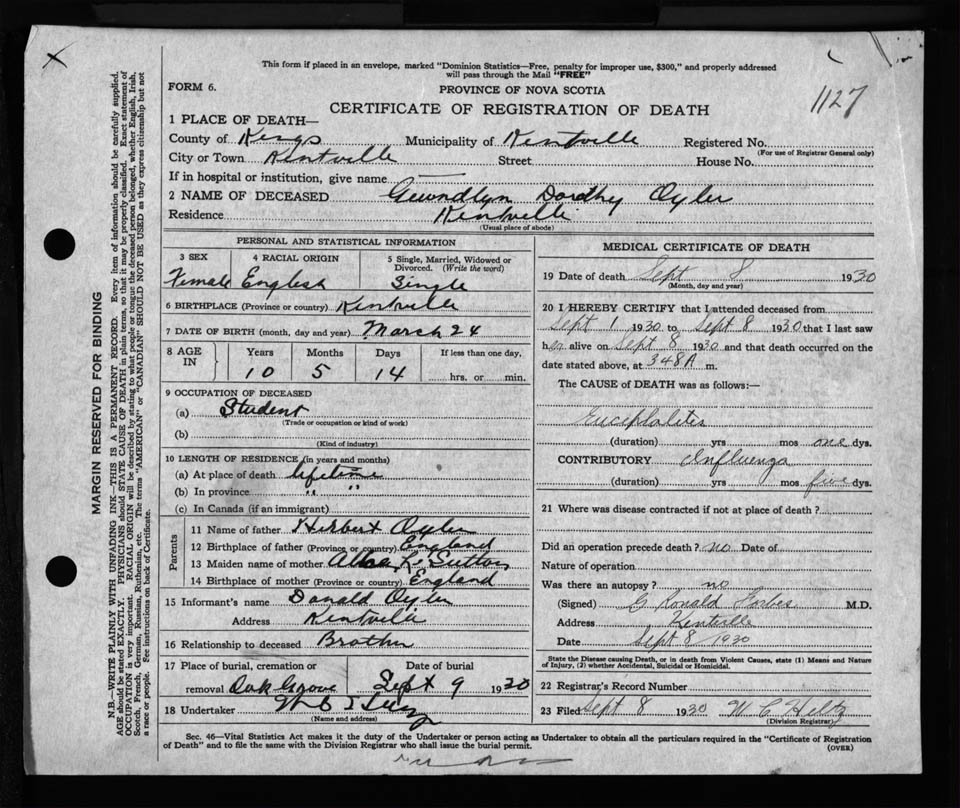 This form if placed in an envelope, marked "Dominion Statistics—Free, penalty for improper use, $300," and properly addressed
will pass through the Mail "FREE"
FORM 6.
PROVINCE OF NOVA SCOTIA
1127
CERTIFICATE OF REGISTRATION OF DEATH
1 PLACE OF DEATH—
County of Kings Municipality of Kentville Registered No.
(For use of Registrar General only)
City or Town Kentville Street House No.
If in hospital or institution, give name —
2 NAME OF DECEASED Gwendlyn Dorothy Oyler
Residence Kentville
(Usual place of abode)
PERSONAL AND STATISTICAL INFORMATION
3 SEX 4 RACIAL ORIGIN 5 Single, Married, Widowed or
Divorced. (Write the word)
Female English Single
6 BIRTHPLACE (Province or country) Kentville
7 DATE OF BIRTH (month, day and year) March 24
8 AGE IN Years Months Days If less than one day,
10 5 14 hrs. or min.
9 OCCUPATION OF DECEASED
(a) Student
(Trade or occupation or kind of work)
(b)
(Kind of industry)
10 LENGTH OF RESIDENCE (in years and months)
(a) At place of death lifetime
(b) In province " "
(c) In Canada (if an immigrant)
Parents
11 Name of father Herbert Oyler
12 Birthplace of father (Province or country) England
13 Maiden name of mother Sutton
14 Birthplace of mother (Province or country) England
15 Informant's name Donald Oyler
Address Kentville
16 Relationship to deceased Brother
17 Place of burial, cremation or Date of burial
removal Oak Grove Sept 9 1930
18 Undertaker
(Name and address)
MEDICAL CERTIFICATE OF DEATH
19 Date of death Sept 8 1930
(Month, day and year)
20 I HEREBY CERTIFY that I attended deceased from
Sept 1 1930 to Sept 8 1930 that I last saw
her alive on Sept 8 1930 and that death occurred on the
date stated above, at 348A m.
The CAUSE OF DEATH was as follows:—
Encephalites
(duration) yrs mos one dys.
CONTRIBUTORY Influenza
(duration) yrs mos five dys.
21 Where was disease contracted if not at place of death?
Did an operation precede death? no Date of
Nature of operation
Was there an autopsy? no
(Signed) G Ronald Forbes M.D.
Address Kentville
Date Sept 8 1930
State the Disease causing Death, or in death from Violent Causes, state (1) Means and Nature
of Injury, (2) whether Accidental, Suicidal or Homicidal.
22 Registrar's Record Number
23 Filed Sept 8 1930 W C Hiltz
(Division Registrar)
Sec. 46—Vital Statistics Act makes it the duty of the Undertaker or person acting as Undertaker to obtain all the particulars required in the "Certificate of Registration
of Death" and to file the same with the Division Registrar who shall issue the burial permit.
(OVER)
MARGIN RESERVED FOR BINDING
N.B.—WRITE PLAINLY WITH UNFADING INK—THIS IS A PERMANENT RECORD. Every item of information should be carefully supplied.
AGE should be stated EXACTLY. PHYSICIANS should STATE CAUSE OF DEATH in plain terms, so that it may be properly classified. Exact statement of
OCCUPATION is very important. RACIAL ORIGIN will be described by stating to what people or tongue the deceased person belonged, whether English, Irish,
Scotch, French, German, Russian, Ruthenian, etc. The terms "AMERICAN" or "CANADIAN" SHOULD NOT BE USED as they express citizenship but not
a race or people. See instructions on back of Certificate.